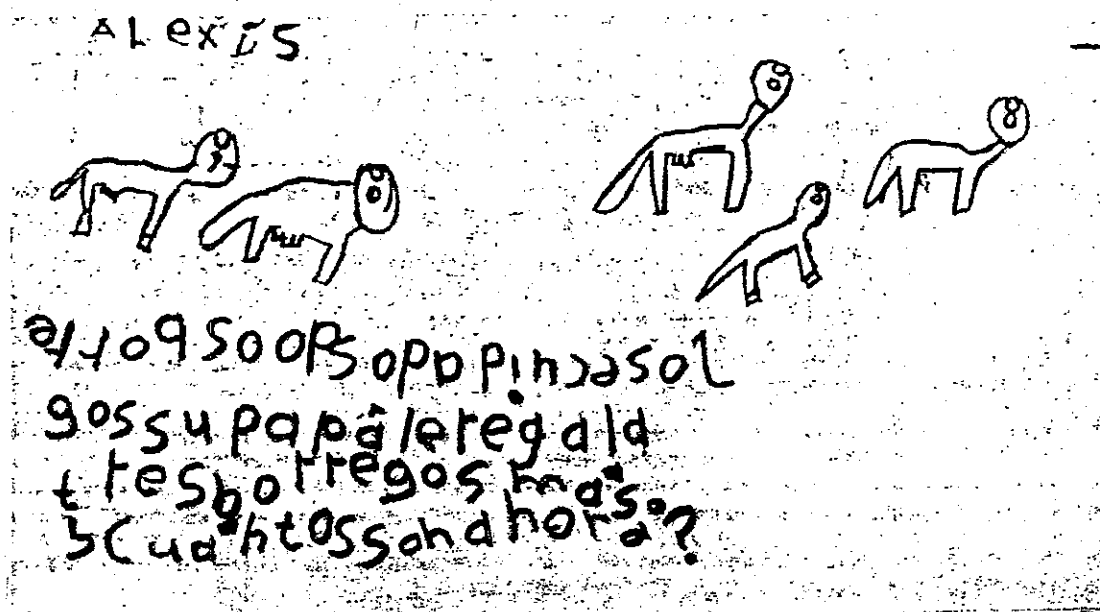 ALexis
Josecuidadosdoosborre
gossupapáleregala
tresborregosmás.
¿Cuántossonahora?